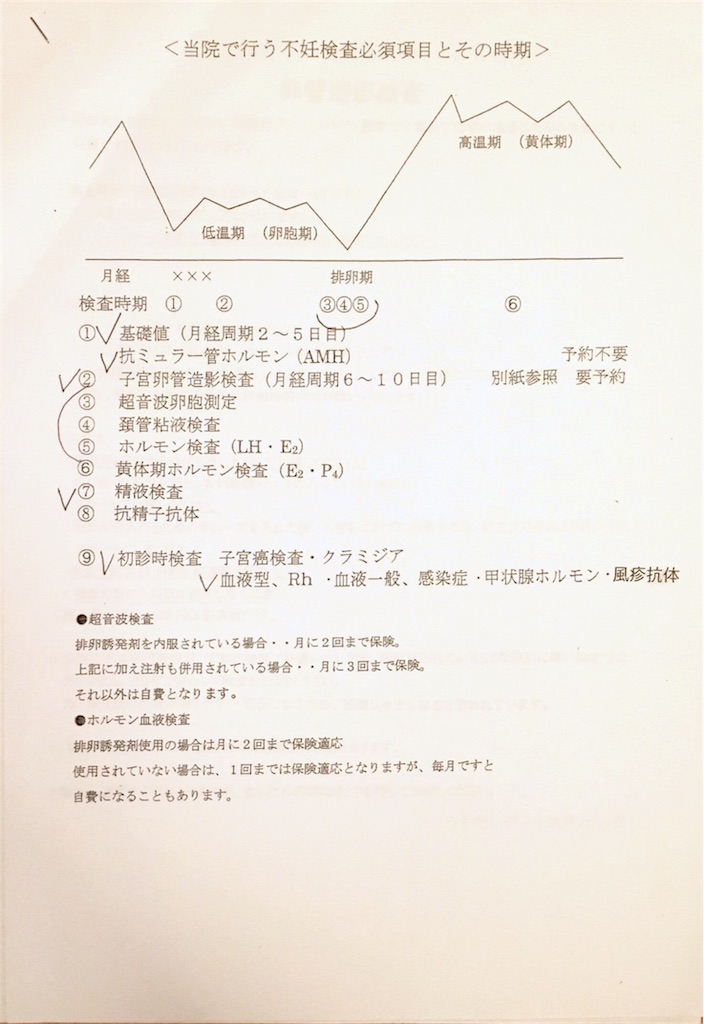 ＜当院で行う不妊検査必須項目とその時期＞
高温期　（黄体期）
低温期　（卵胞期）
月経　×××　排卵期
検査時期　①　②　③④⑤　⑥
①　基礎値（月経周期２～５日目）
抗ミュラー管ホルモン（AMH）　予約不要
②　子宮卵管造影検査（月経周期６～１０日目）　別紙参照　要予約
③　超音波卵胞測定
④　頚管粘液検査
⑤　ホルモン検査（LH・E₂）
⑥　黄体期ホルモン検査（E₂・P₄）
⑦　精液検査
⑧　抗精子抗体
⑨　初診時検査　子宮癌検査・クラミジア
血液型、Rh　・血液一般、感染症・甲状腺ホルモン・風疹抗体
●超音波検査
排卵誘発剤を内服されている場合・・月に２回まで保険。
上記に加え注射も併用されている場合・・月に３回まで保険。
それ以外は自費となります。
●ホルモン血液検査
排卵誘発剤使用の場合は月に２回まで保険適応
使用されていない場合は、１回までは保険適応となりますが、毎月ですと
自費になることもあります。